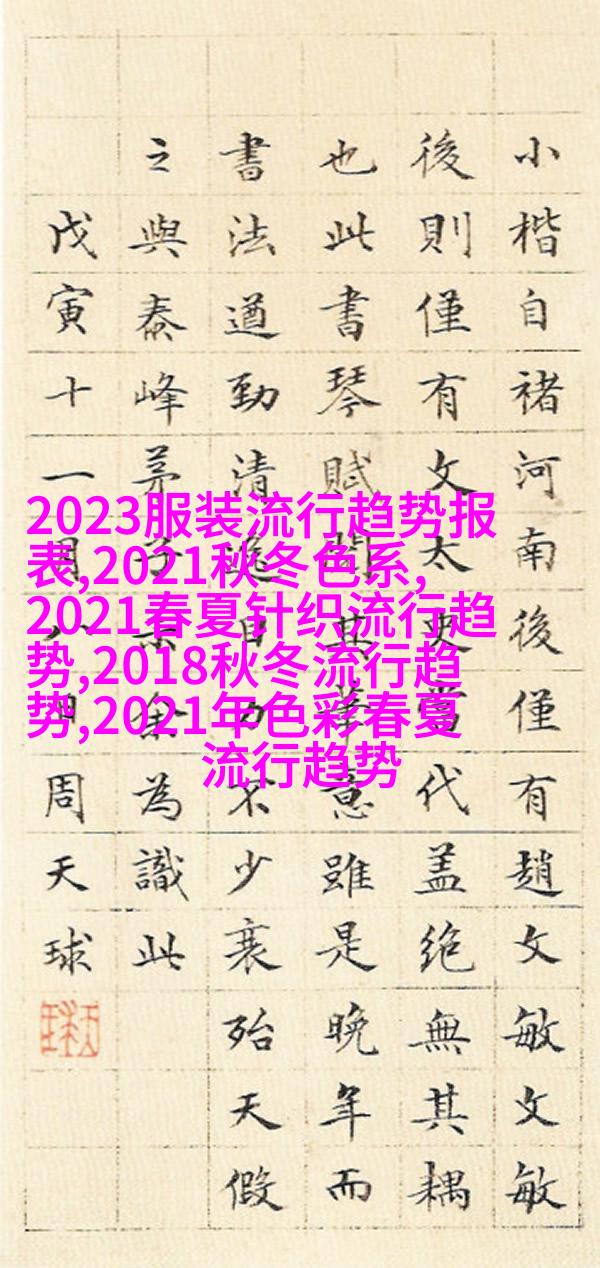 小楷自褚河南後僅有趙文敏文敏
後則僅有文太史當代盖絶無其耦
也此書琴賦其意雖是晚年而
書法遒勁清逸目力不少衰殆天假
之與泰峰茅子示余為識此
戊寅十一月八日周天球
2023服装流行趋势报
表,2021秋冬色系,
2021春夏针织流行趋
势,2018秋冬流行趋
势,2021年色彩春夏
流行趋势